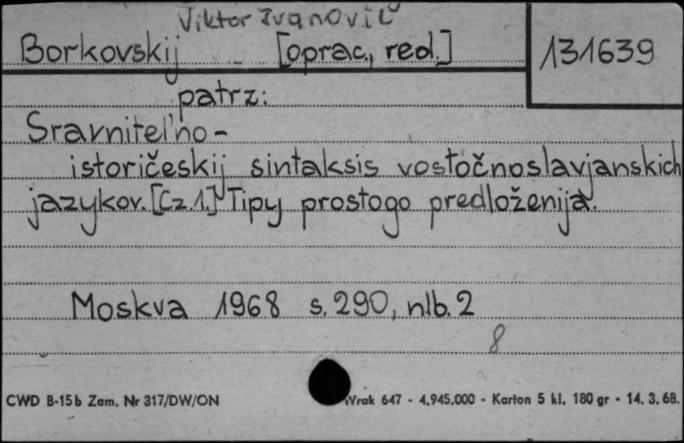 Viktor Ivanovič
Borkovskij [oprac., red.]
131639
patrz:
Sravnitel'no-
istoričeskij sintaksis vostočnoslavjanskich
jazykov. [Cz.1.] Tipy prostogo predloženija.
Moskva 1968 s. 290, nlb. 2
8
CWD B-15b Zam. Nr 317/DW/ON
Wrak 647 - 4.945.000 - Karton 5 kl. 180 gr - 14. 3. 68.